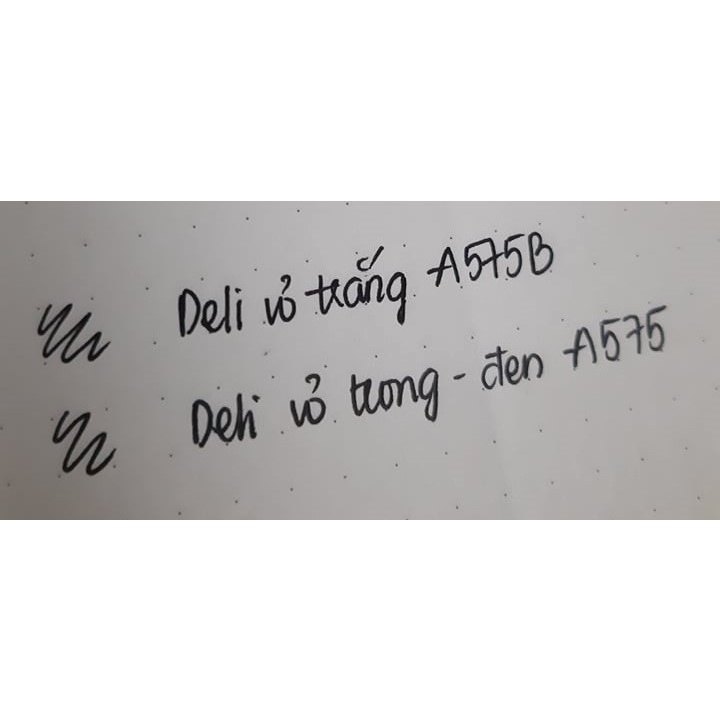 Deli vỏ trắng A575B
Deli vỏ trong - đen A575